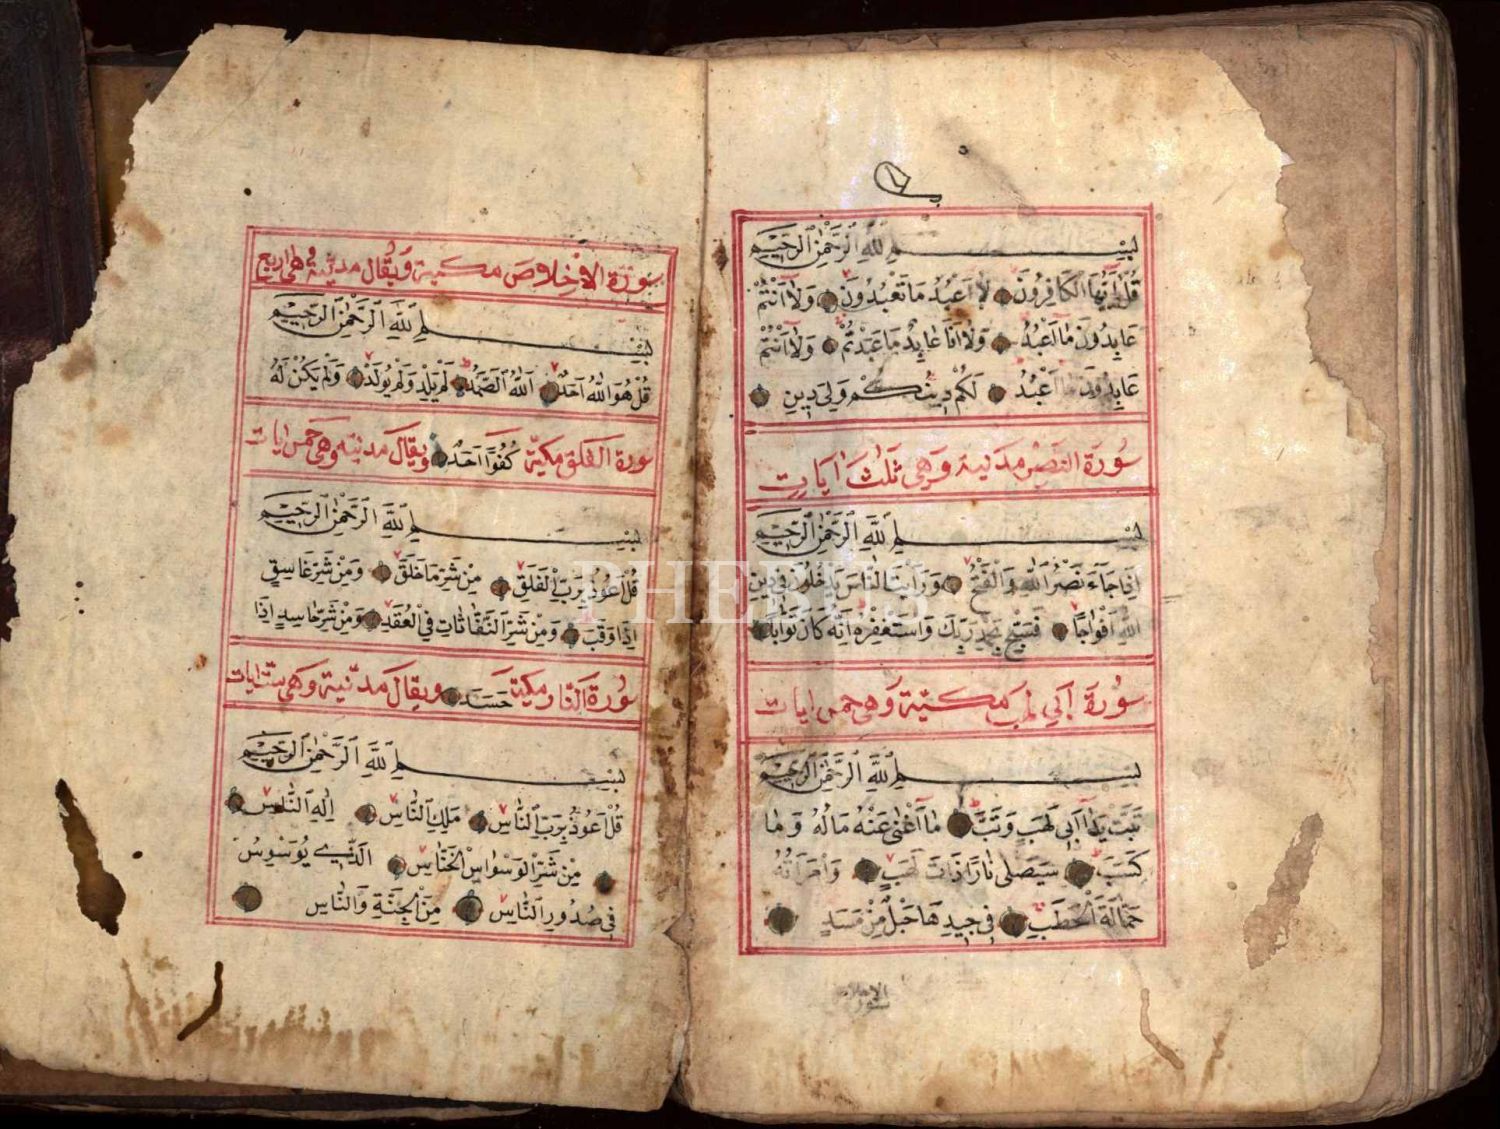 بِسْمِ اللَّهِ الرَّحْمٰنِ الرَّحِيمِ
قُلْ يَا أَيُّهَا الْكَافِرُونَ لَا أَعْبُدُ مَا تَعْبُدُونَ وَلَا أَنْتُمْ
عَابِدُونَ مَا أَعْبُدُ وَلَا أَنَا عَابِدٌ مَا عَبَدْتُمْ وَلَا أَنْتُمْ
عَابِدُونَ مَا أَعْبُدُ لَكُمْ دِينُكُمْ وَلِيَ دِينِ
سُورَةُ النَّصْرِ مَدَنِيَّة وَهِيَ ثَلٰثُ اٰيَاتٍ
بِسْمِ اللَّهِ الرَّحْمٰنِ الرَّحِيمِ
اِذَا جَاءَ نَصْرُ اللَّهِ وَالْفَتْحُ وَرَأَيْتَ النَّاسَ يَدْخُلُونَ فِي دِينِ
اللَّهِ أَفْوَاجًا فَسَبِّحْ بِحَمْدِ رَبِّكَ وَاسْتَغْفِرْهُ اِنَّهُ كَانَ تَوَّابًا
سُورَةُ اَبِي لَهَب مَكِّيَّة وَهِيَ خَمْسُ اٰيَات
بِسْمِ اللَّهِ الرَّحْمٰنِ الرَّحِيمِ
تَبَّتْ يَدَا أَبِي لَهَبٍ وَتَبَّ مَا أَغْنٰى عَنْهُ مَالُهُ وَمَا
كَسَبَ سَيَصْلٰى نَارًا ذَاتَ لَهَبٍ وَامْرَأَتُهُ
حَمَّالَةَ الْحَطَبِ فِي جِيدِهَا حَبْلٌ مِنْ مَسَدٍ
سورة الاخلاص
سُورَةُ الْاِخْلَاصِ مَكِّيَّة وَيُقَالُ مَدَنِيَّة وَهِيَ اَرْبَع
بِسْمِ اللَّهِ الرَّحْمٰنِ الرَّحِيمِ
قُلْ هُوَ اللَّهُ أَحَدٌ اَللَّهُ الصَّمَدُ لَمْ يَلِدْ وَلَمْ يُولَدْ وَلَمْ يَكُنْ لَهُ
سورة الفلق مكيّة كُفُوًا أَحَدٌ ويقال مدنيّة وهي خمس ايات
بِسْمِ اللَّهِ الرَّحْمٰنِ الرَّحِيمِ
قُلْ أَعُوذُ بِرَبِّ الْفَلَقِ مِنْ شَرِّ مَا خَلَقَ وَمِنْ شَرِّ غَاسِقٍ
اِذَا وَقَبَ وَمِنْ شَرِّ النَّفَّاثَاتِ فِي الْعُقَدِ وَمِنْ شَرِّ حَاسِدٍ اِذَا
سُورَةُ النَّاس مكية حَسَدَ ويقال مدنيّة وهي ست ايات
بِسْمِ اللَّهِ الرَّحْمٰنِ الرَّحِيمِ
قُلْ أَعُوذُ بِرَبِّ النَّاسِ مَلِكِ النَّاسِ اِلٰهِ النَّاسِ
مِنْ شَرِّ الْوَسْوَاسِ الْخَنَّاسِ الَّذِي يُوَسْوِسُ
فِي صُدُورِ النَّاسِ مِنَ الْجِنَّةِ وَالنَّاسِ
PHEBUS